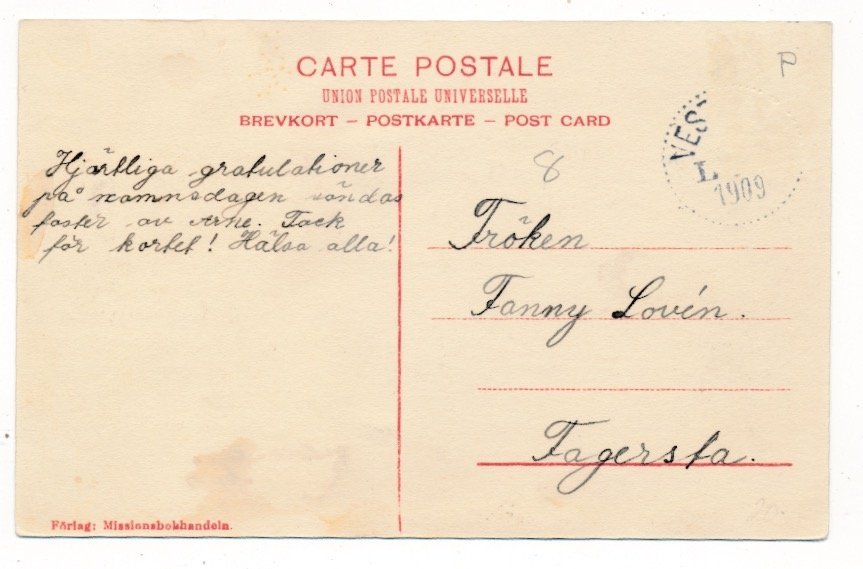 CARTE POSTALE
UNION POSTALE UNIVERSELLE
BREVKORT – POSTKARTE – POST CARD
P
VES
L
1909
8
Hjärtliga gratulationer
på namnsdagen sändas
faster av Arne. Tack
för kortet! Hälsa alla!
Fröken
Fanny Lovén.
Fagersta.
Förlag: Missionsbokhandeln.